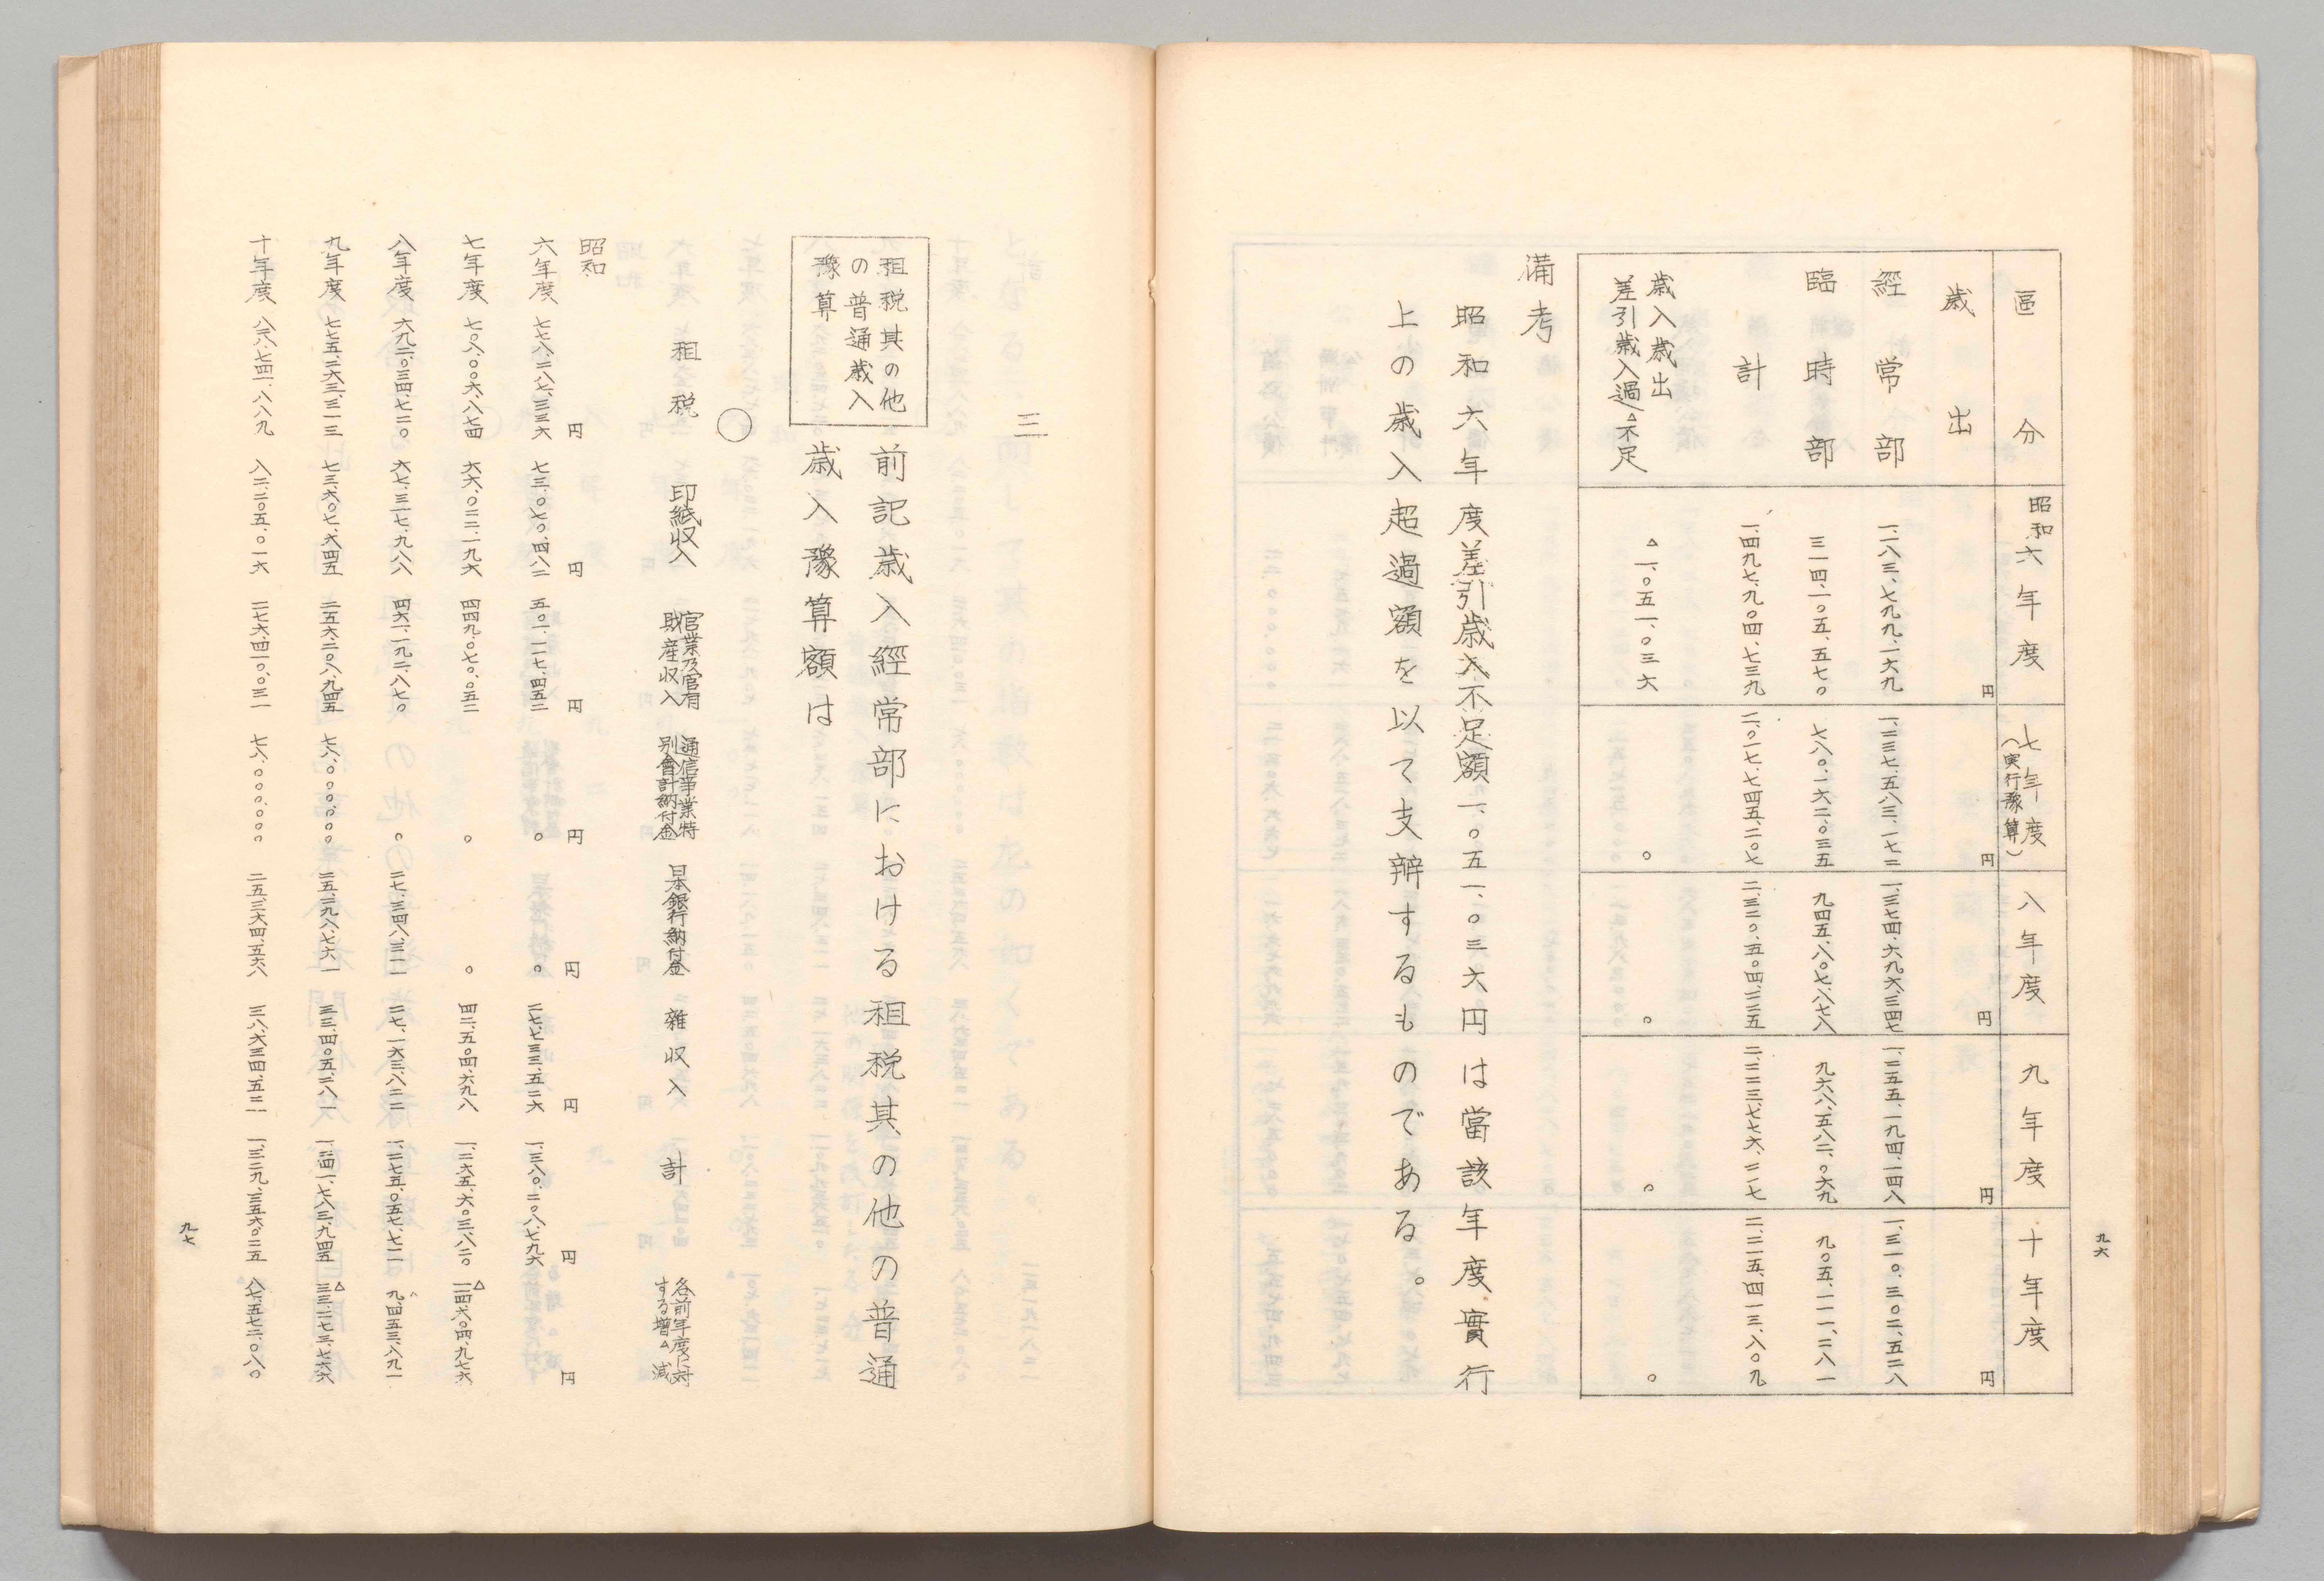 九六
區分 昭和六年度 七年度(実行豫算) 八年度 九年度 十年度
歳出 円 円 円 円 円
經常部 一、一八三、七九九、一六九 一、二三七、五八三、一七二 一、三七四、六九六、三四七 一、二五五、一九四、一四八 一、三一〇、三〇二、五二八
臨時部 三一四、一〇五、五七〇 七八〇、一六二、〇三五 九四五、八〇七、八七八 九六八、五八二、〇六九 九〇五、一一一、二八一
計 一、四九七、九〇四、七三九 二、〇一七、七四五、二〇七 二、三二〇、五〇四、二二五 二、二二三、七七六、二一七 二、二一五、四一三、八〇九
歳入歳出
差引歳入過△不足 △一、〇五一、〇三六 〇 〇 〇 〇
備考
昭和六年度差引歳入不足額一、〇五一、〇三六円は當該年度實行
上の歳入超過額を以て支辨するものである。
三
租税其の他
の普通歳入
豫算
前記歳入經常部における租税其の他の普通
歳入豫算額は
〇
租税 印紙収入 官業及官有財産収入 通信事業特別會計納付金 日本銀行納付金 雑収入 計 各前年度に対する増△減
昭和 円 円 円 円 円 円 円 円
六年度 七七八、二八七、三三六 七三、〇七〇、四八二 五〇一、一一七、四五二 〇 〇 二七、七三三、五二六 一、三八〇、二〇八、七九六
七年度 七〇八、〇〇六、八七四 六六、〇二二、一九六 四四九、〇七〇、〇五二 〇 〇 四二、五〇四、六九八 一、二六五、六〇三、八二〇 △一一四、六〇四、九七六
八年度 六九二、〇三四、七二〇 六七、三一七、九八八 四六一、一九二、八七〇 〇 二七、三四八、三一一 二七、一六三、八二二 一、二七五、〇五七、七一一 九、四五三、八九一
九年度 七七五、二六三、三一三 七三、六〇七、六四五 二五六、二〇八、九四五 七八、〇〇〇、〇〇〇 二五、二九八、七六一 三三、四〇五、二八一 一、二四一、七八三、九四五 △三三、二七三、七六六
十年度 八二八、七四一、八八九 八二、二〇五、〇一六 二七六、四一〇、〇三一 七八、〇〇〇、〇〇〇 二五、三六四、五六八 三八、六三四、五二一 一、三二九、三五六、〇二五 八七、五七二、〇八〇
九七